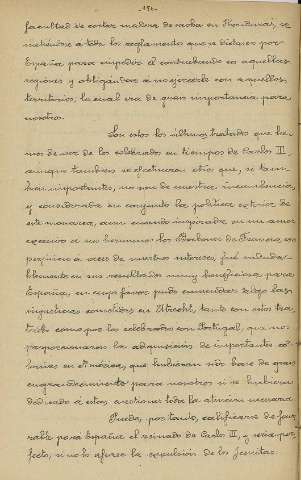 facultad de cortar madera
metiéndose a todo los reglamentos que se dictasen por
España para impedir el contrabando en aquellas
regiones y obligándose a no yerlo con aquellos
territorios, lo cual era de gran importancia para
nosotros.
Son estos los últimos tratados que he-
mos de ver de los celebrados en tiempos de Carlos III
aunque también se efectuaron otros que, si tam-
bien importantes, no son de nuestra incumbencia
y considerada en conjunto la política exterior de
este monarca, aun cuando inspirada en un amor
excesivo a sus hermanos los Borbones de Francia, con
perjuicio a veces de nuestros intereses, fué induda-
blemente en sus resultados muy beneficiosa para
España, en cuyo favor pudo enmendar algo las
injusticias cometidas en Utrecht, tanto con este tra-
tado como por los celebrados con Portugal, que nos
proporcionaron la adquisición de importantes co-
lonias en América, que hubieran sido base de gran
engrandecimiento para nosotros si se hubiera
dedicado a estas cuestiones toda la atención necesaria
Puede, por tanto, calificarse de favo-
rable para España el reinado de Carlos III, y sería per-
fecto, si no lo afease la expulsión de los jesuitas.